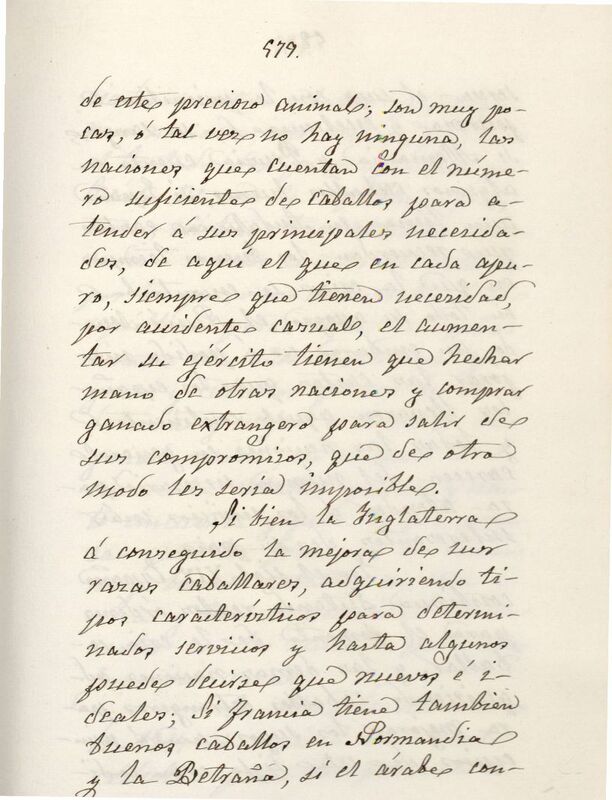 579.
de este precioso animal; son muy po-
cas, ó tal vez no hay ninguna, las
naciones que cuentan con el núme-
ro suficiente de caballos para a-
tender á sus principales necesida-
des, de aquí el que en cada apu-
ro, siempre que tienen necesidad,
por accidente casual, el aumen-
tar su ejército tienen que hechar
mano de otras naciones y comprar
ganado extrangero para salir de
sus compromisos, que de otra
modo les seria imposible.
Si bien la Inglaterra
á conseguido la mejora de sus
razas caballares, adquiriendo ti-
pos característicos para determi-
nados servicios y hasta algunos
puede decirse que nuevos é i-
deales; Si Francia tiene tambien
buenos caballos en Normandia
y la Betraña, si el árabe con-